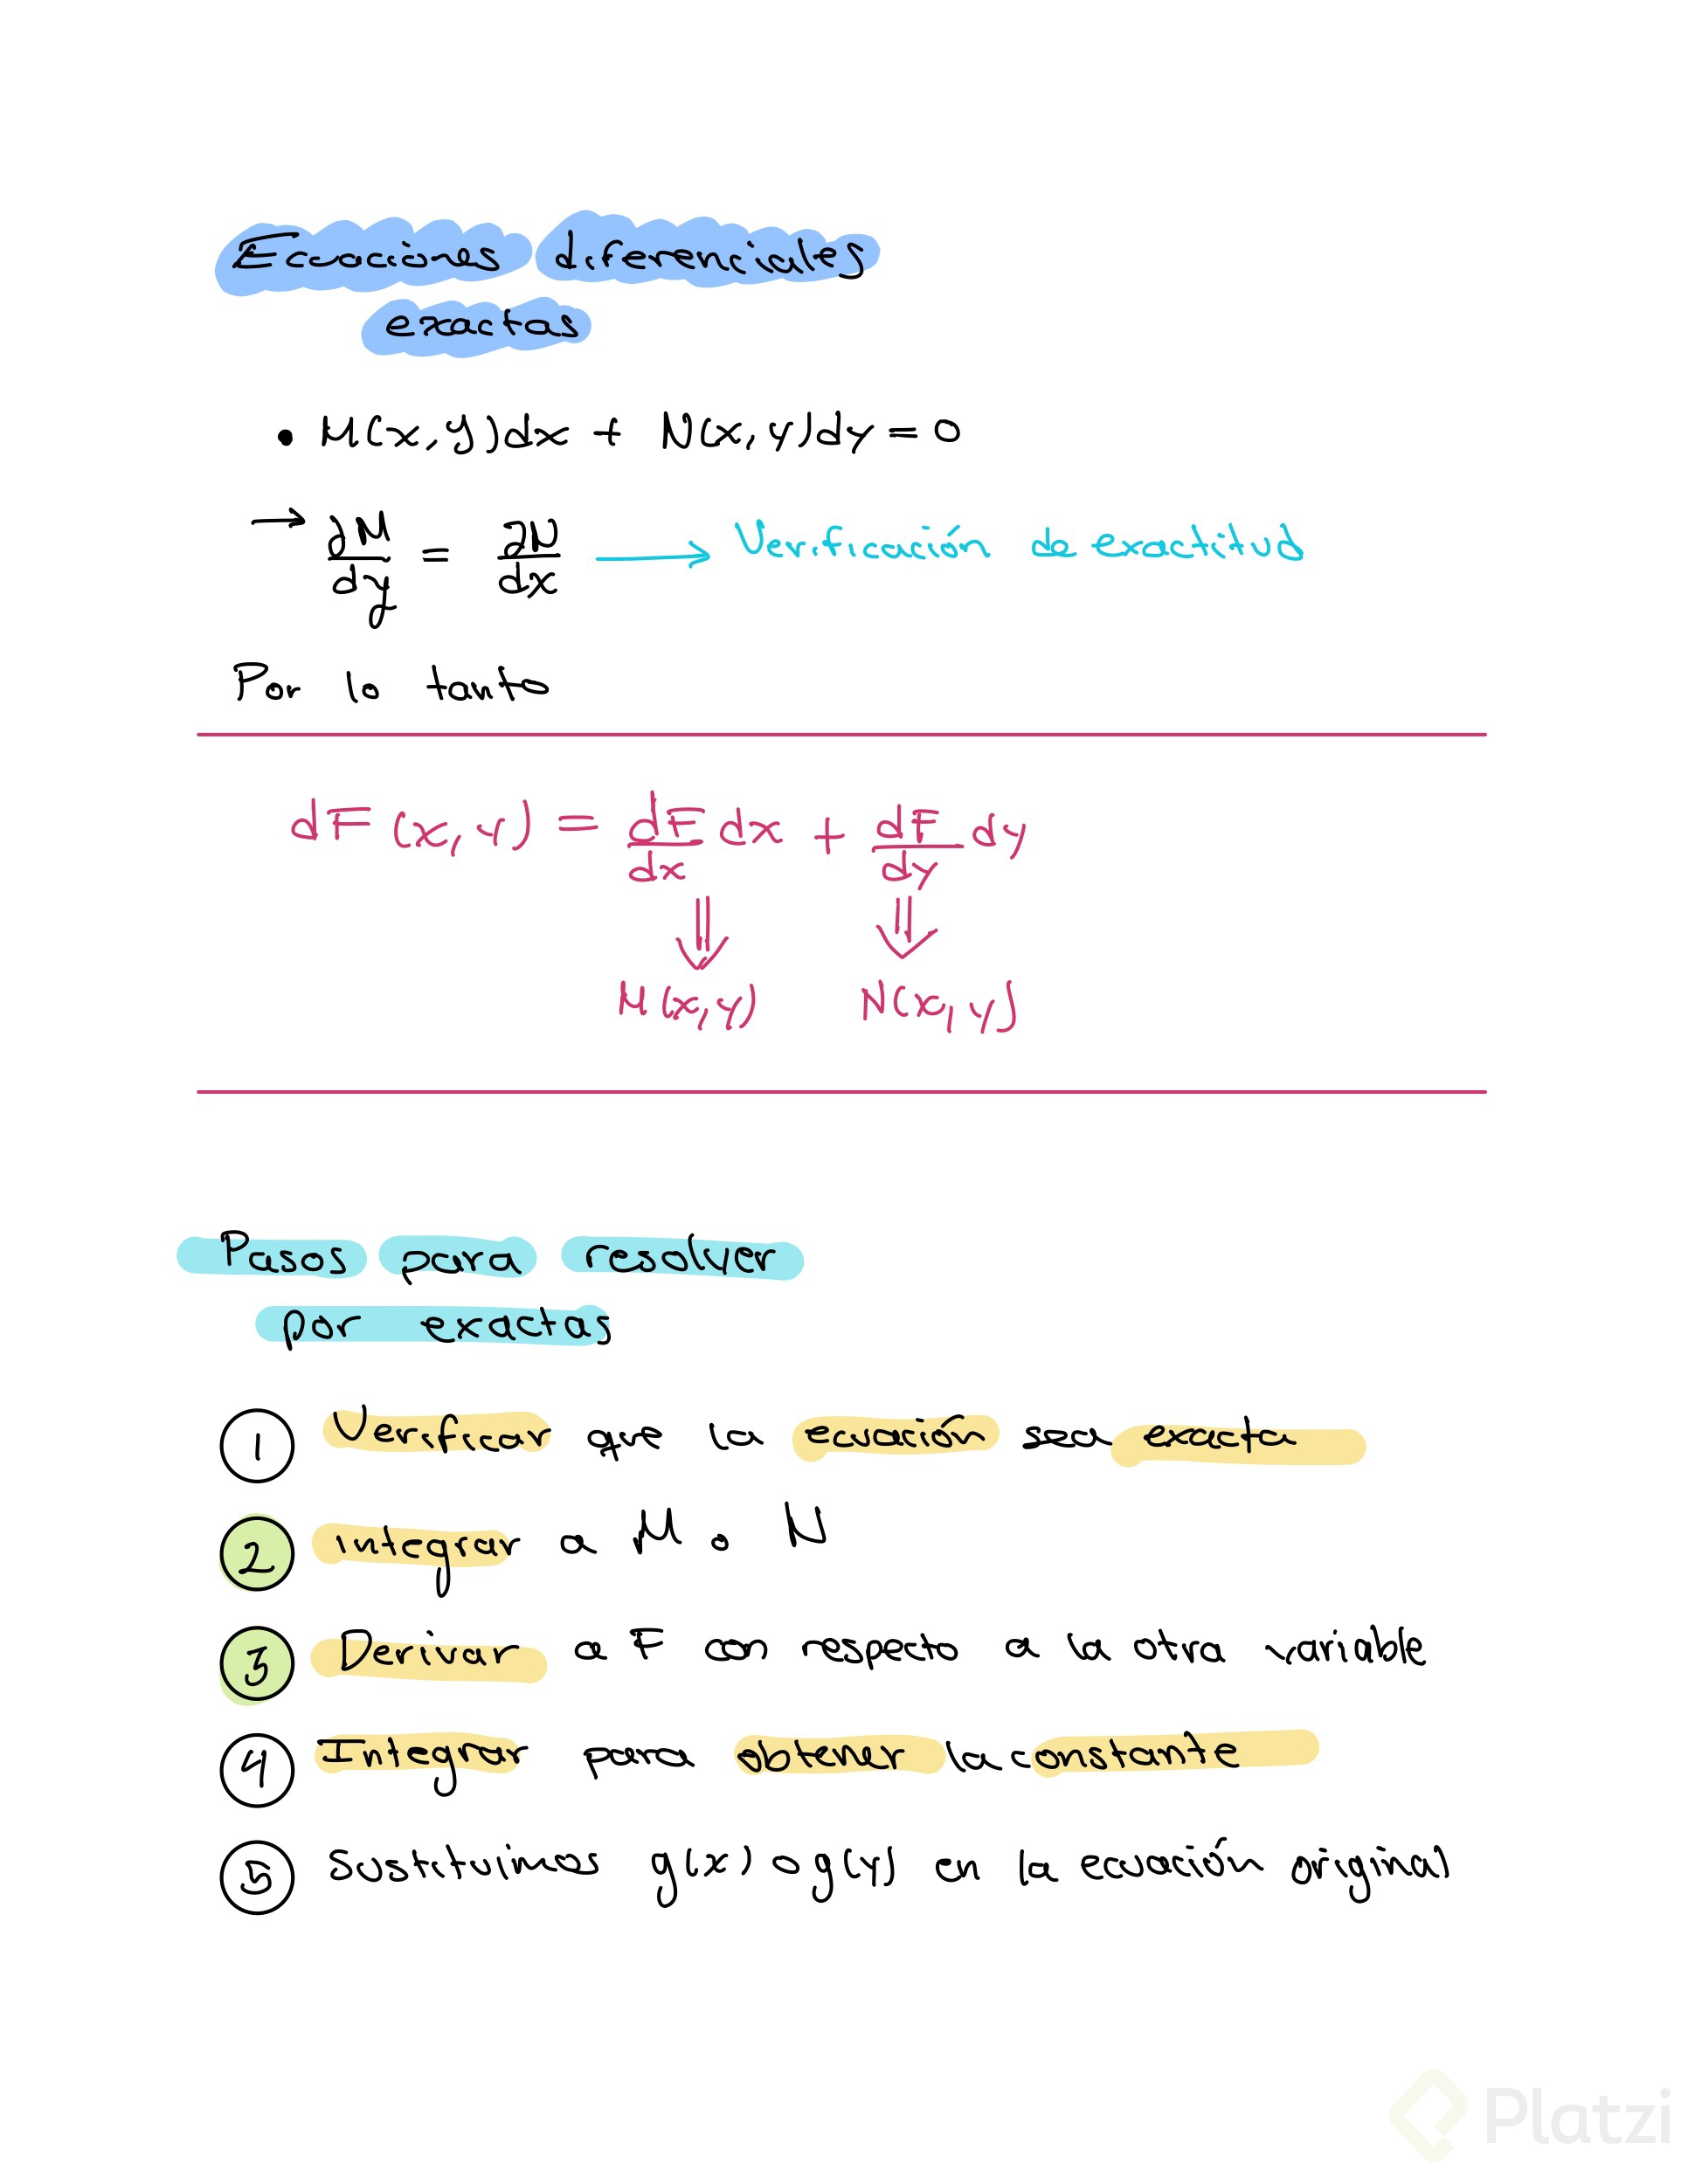 Ecuaciones diferenciales
exactas
• M(x,y)dx + N(x,y)dy = 0
→ ∂M/dy = ∂N/dx → Verificación de exactitud
Por lo tanto
dF(x,y) = dF/dx dx + dF/dy dy
⇓ ⇓
M(x,y) N(x,y)
Pasos para resolver
por exactas
1 Verificar que la ecuación sea exacta
2 integrar a M o N
3 Derivar a F con respecto a la otra variable
4 Integrar para obtener la constante
5 Sustituimos g(x) o g(y) en la ecuación original
Platzi